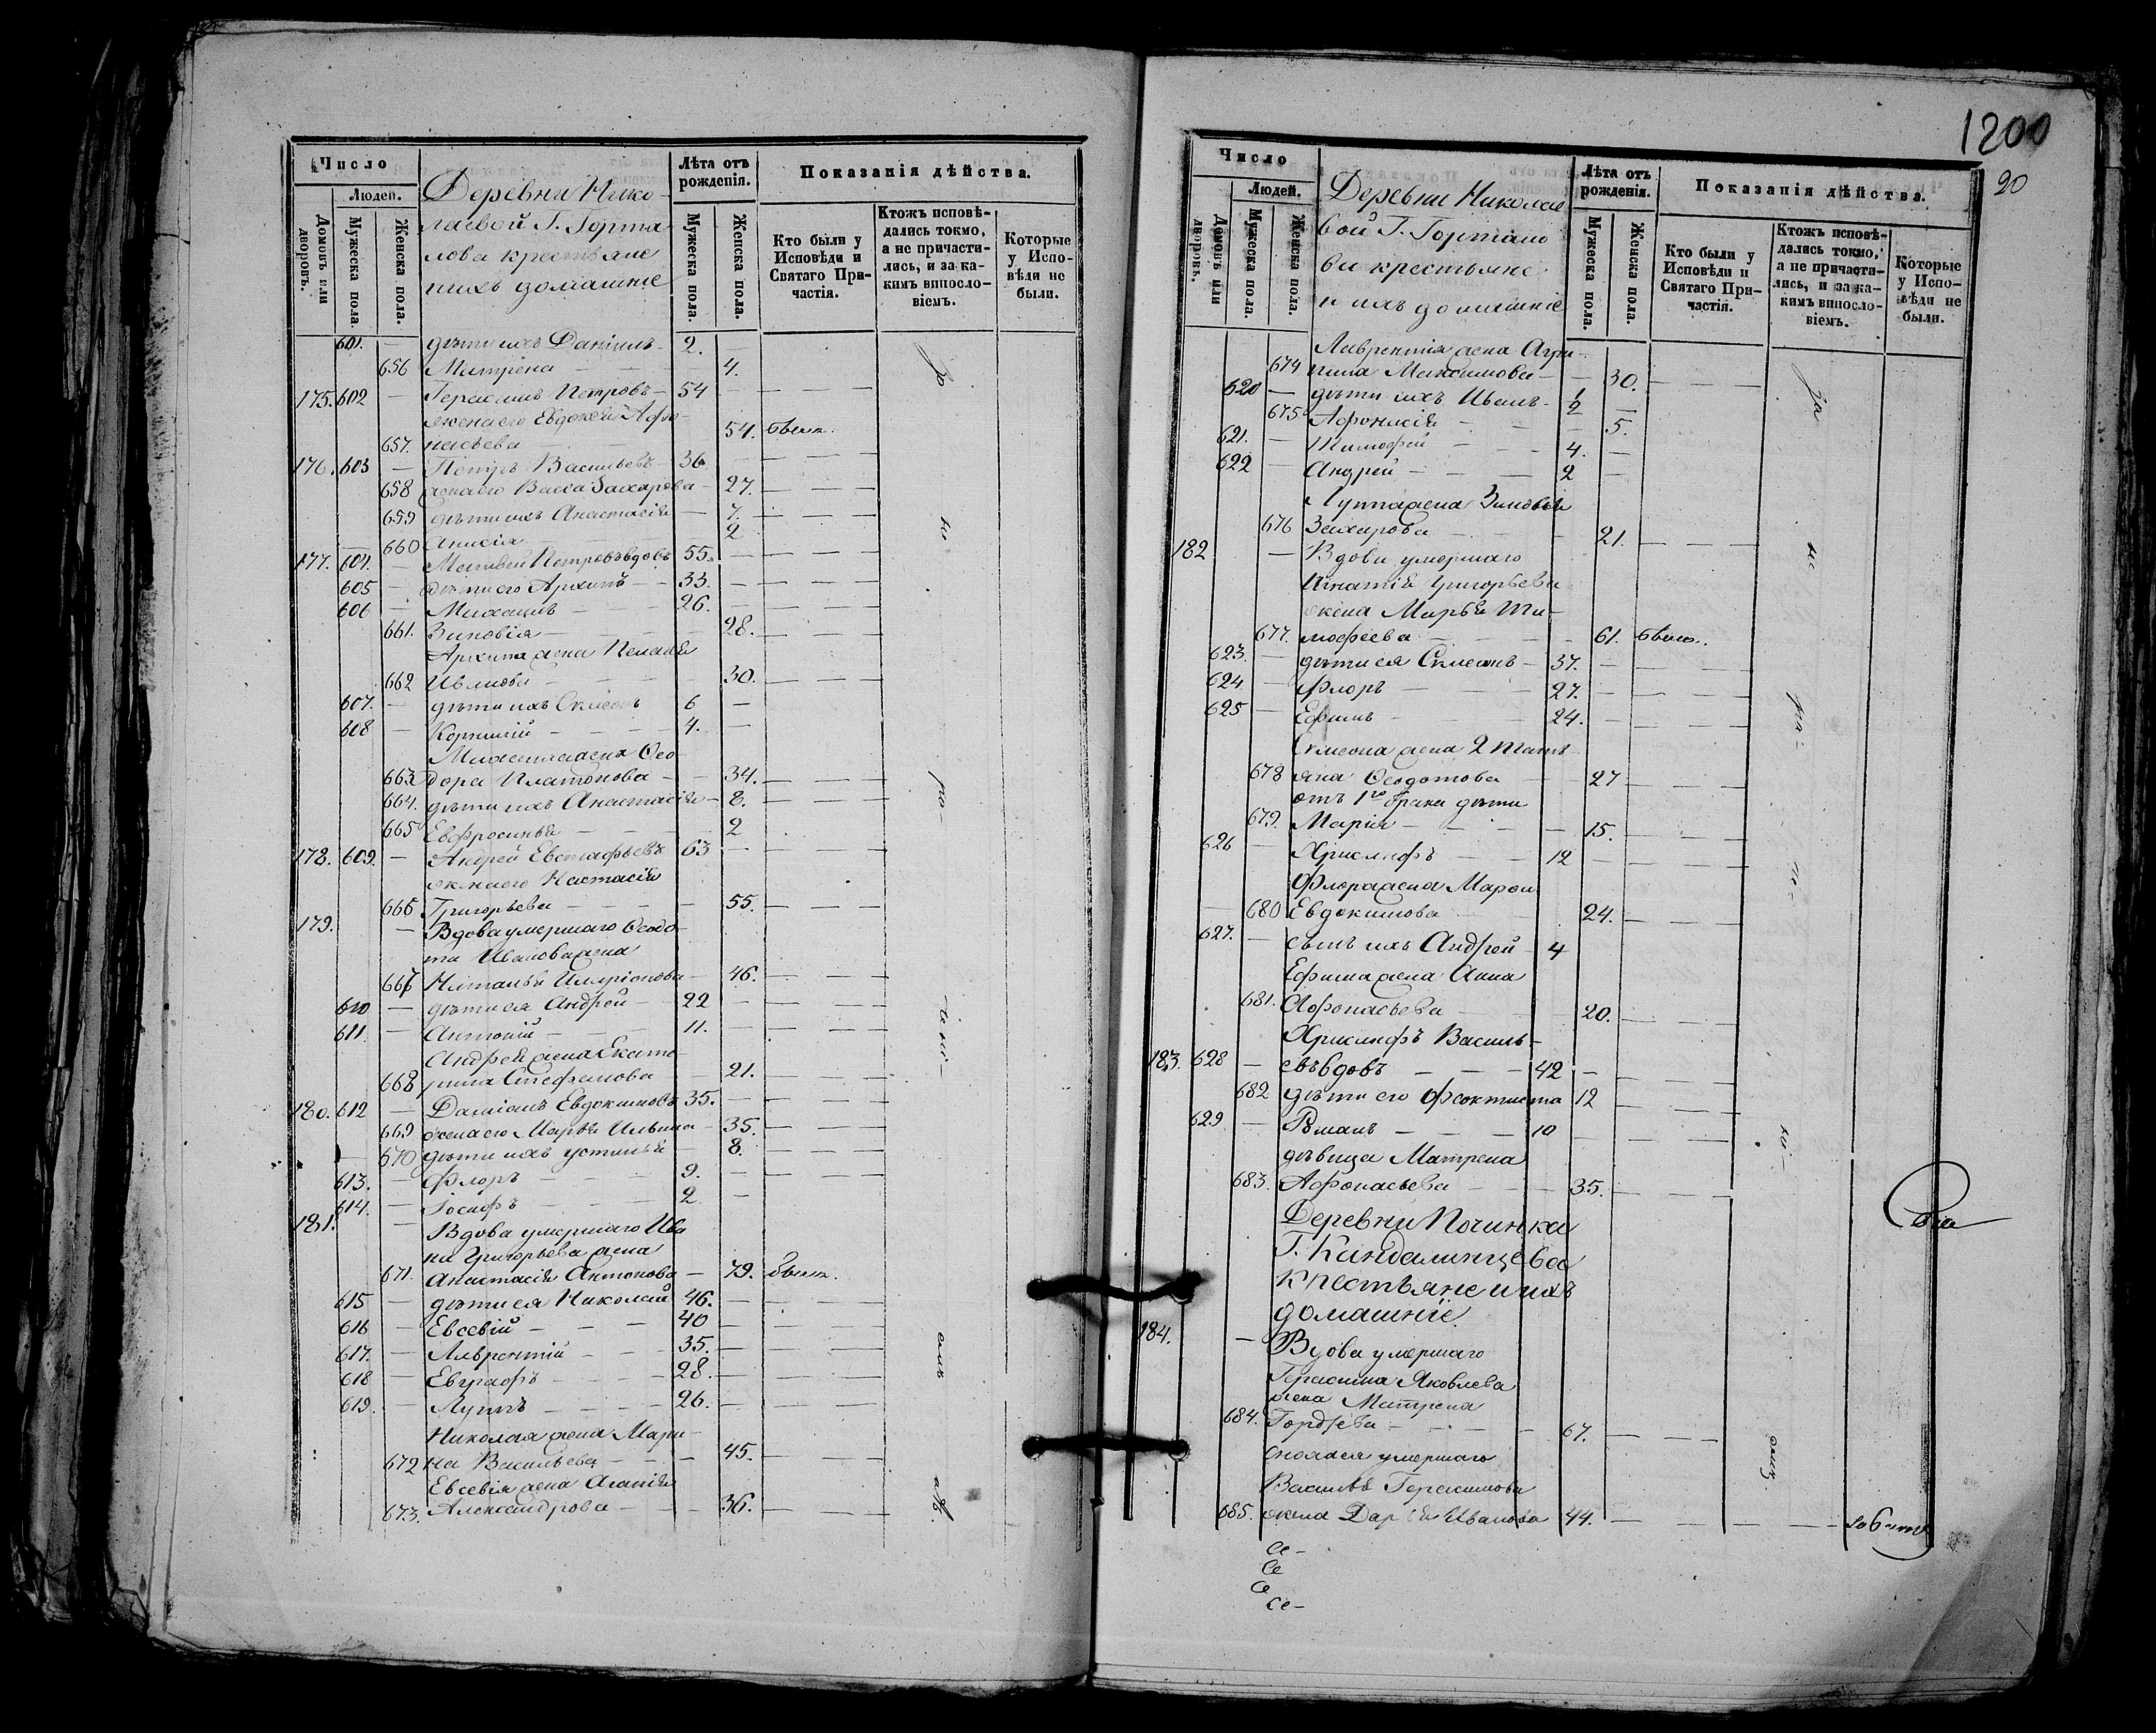 Число
Людей.
Домовъ или дворовъ.
Мужеска пола.
Женска пола.
Деревни Нико-
лаевой Г. Горта-
лова крестьяне
и ихъ домашніе
Лѣта отъ рожденія.
Мужеска пола.
Женска пола.
Показанія дѣйства.
Кто были у Исповѣди и Святаго Причастія.
Ктожъ исповѣдались токмо, а не причастились, и за какимъ винословіемъ.
Которые у Исповѣди не были.
601. — дѣти ихъ Даніилъ — 2. —
656 Матрена — — — 4.
175. 602 — Герасимъ Петровъ — 54 —
жена его Евдокія Афо-
657. насьева — 54. были.
176. 603 — Петръ Васильевъ — 36 —
658 жена его Васса Захарова — 27.
659 дѣти ихъ Анастасія — 7.
660 Анисія — 2
177. 604. — Матвей Петровъ вдовъ 55. —
605 — дѣти его Архипъ — 33. —
606 — Михаилъ — 26. —
661. Зиновія — 28.
Архипа жена Пелагія
662 Ивлиова — 30.
607. — дѣти ихъ Симеонъ 6 —
608 — Корнилій — 4. —
Михаила жена Ѳео-
663 дора Платонова — 34.
664. дѣти ихъ Анастасія — 8.
665 Евфросинья — 2
178. 609. — Андрей Евстафьевъ 63 —
жена его Настасія
666 Григорьева — 55.
179. — Вдова умершаго Ѳеодо-
та Иванова жена
667 Наталья Иларіонова — 46.
610 — дѣти ея Андрей — 22 —
611. — Антоній — 11. —
Андрея жена Екате-
668 рина Стефанова — 21.
180. 612 — Даміанъ Евдокимовъ 35. —
669 жена его Марья Ильина — 35.
670 дѣти ихъ Устинья — 8.
613. — Флоръ — 9. —
614. — Іосифъ — 2 —
181. — Вдова умершаго Ива-
на Григорьева жена
671. Анастасія Антонова — 79. были.
615 — дѣти ея Николай 46. —
616 — Евсевій — 40 —
617. — Лаврентій — 35. —
618 — Евграфъ — 28. —
619. — Луппъ — 26. —
Николая жена Мари-
672 на Васильева — 45.
Евсевія жена Агапія
673. Александрова — 36.
1200
20
Число
Людей.
Домовъ или дворовъ.
Мужеска пола.
Женска пола.
Деревни Николае-
вой Г. Гортало-
ва крестьяне
и ихъ домашніе
Лѣта отъ рожденія.
Мужеска пола.
Женска пола.
Показанія дѣйства.
Кто были у Исповѣди и Святаго Причастія.
Ктожъ исповѣдались токмо, а не причастились, и за какимъ винословіемъ.
Которые у Исповѣди не были.
Лаврентія жена Агри-
674 пина Максимова — 30.
620 — дѣти ихъ Иванъ — 1/2 —
675 Афонасія — 5.
621. — Тимофей — 4. —
622 — Андрей — 2 —
Луппа жена Зиновья
676 Захарова — 21.
182 — Вдова умершаго
Игнатія Григорьева
жена Марья Ти-
677. мофеева — 61. были.
623. — дѣти ея Симеонъ — 37. —
624 — Флоръ — 27. —
625 — Ефимъ — 24. —
Симеона жена 2 Тать-
678 яна Ѳеодотова — 27
отъ 1го брака дѣти
679. Марія — 15.
626 — Хрисанфъ — 12 —
Флора жена Марѳа
680 Евдокимова 24.
627. — сынъ ихъ Андрей — 4
Ефима жена Анна
681. Афонасьева — 20.
Хрисанфъ Василь-
183. 628 — евъ вдовъ — 42 —
682 дѣти его Феоктиста 12
629 — Романъ — 10 —
дѣвица Матрена
683. Афонасьева — 35.
Деревни Починка
Г. Кандалинцева
крестьяне и ихъ
домашніе.
184. — Вдова умершаго
Герасима Яковлева
жена Матрена
684. Гордѣева — 67.
сноха ея умершаго
Василья Герасимова
685. жена Дарья Иванова 44.